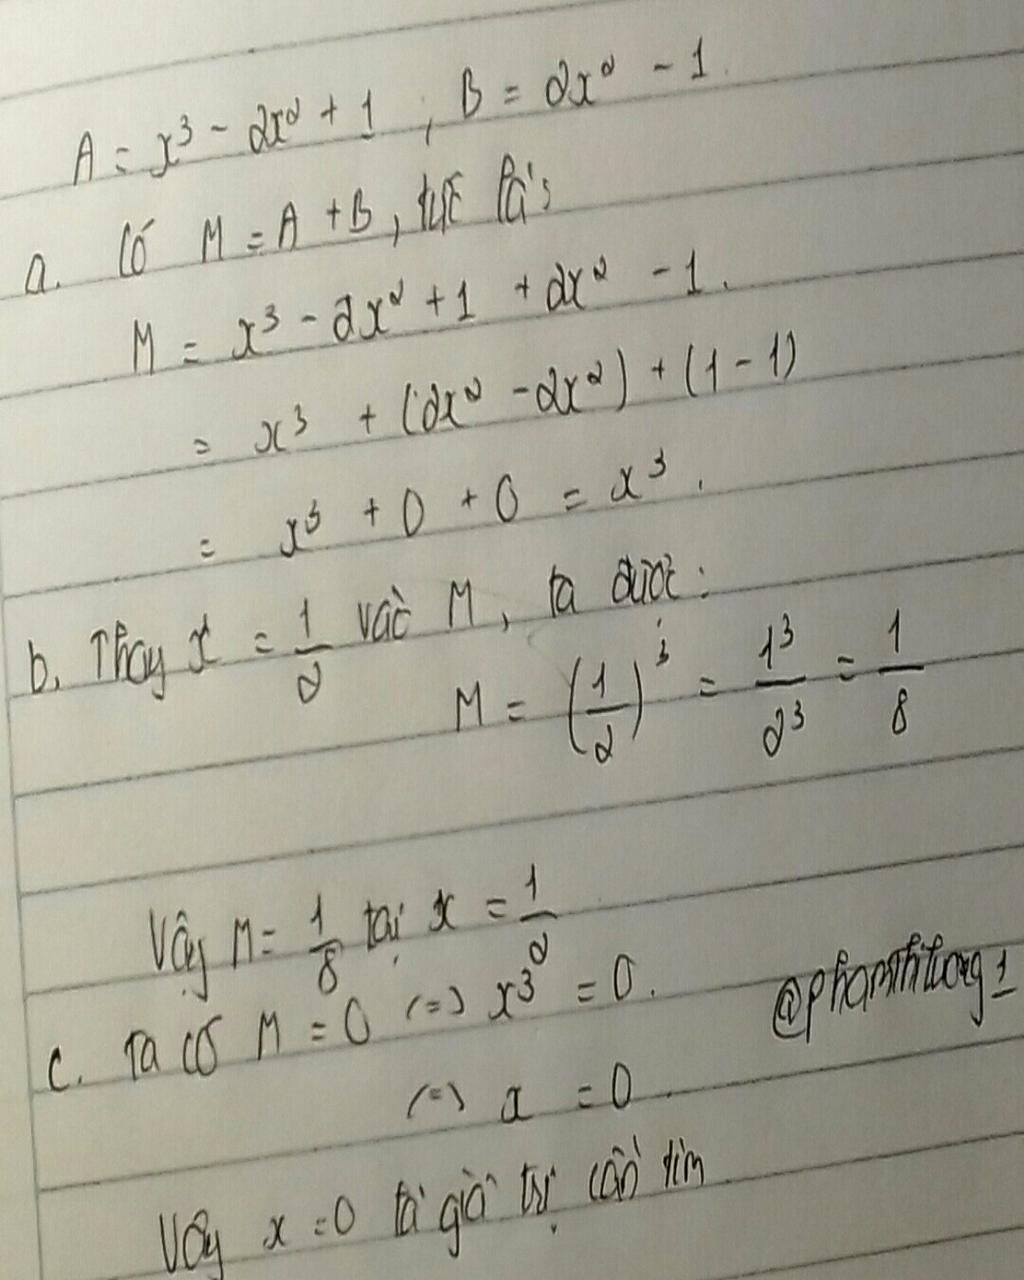 A = x³ - 2x² + 1 ; B = 2x² - 1.
a. Có M = A + B, tức là:
M = x³ - 2x² + 1 + 2x² - 1.
= x³ + (2x² - 2x²) + (1 - 1)
= x³ + 0 + 0 = x³.
b. Thay x = 1/2 vào M, ta được:
M = (1/2)³ = 1³/2³ = 1/8
Vậy M = 1/8 tại x = 1/2
c. Ta có M = 0 (=) x³ = 0.
@phamthituong1
(=) x = 0
Vậy x = 0 là giá trị cần tìm